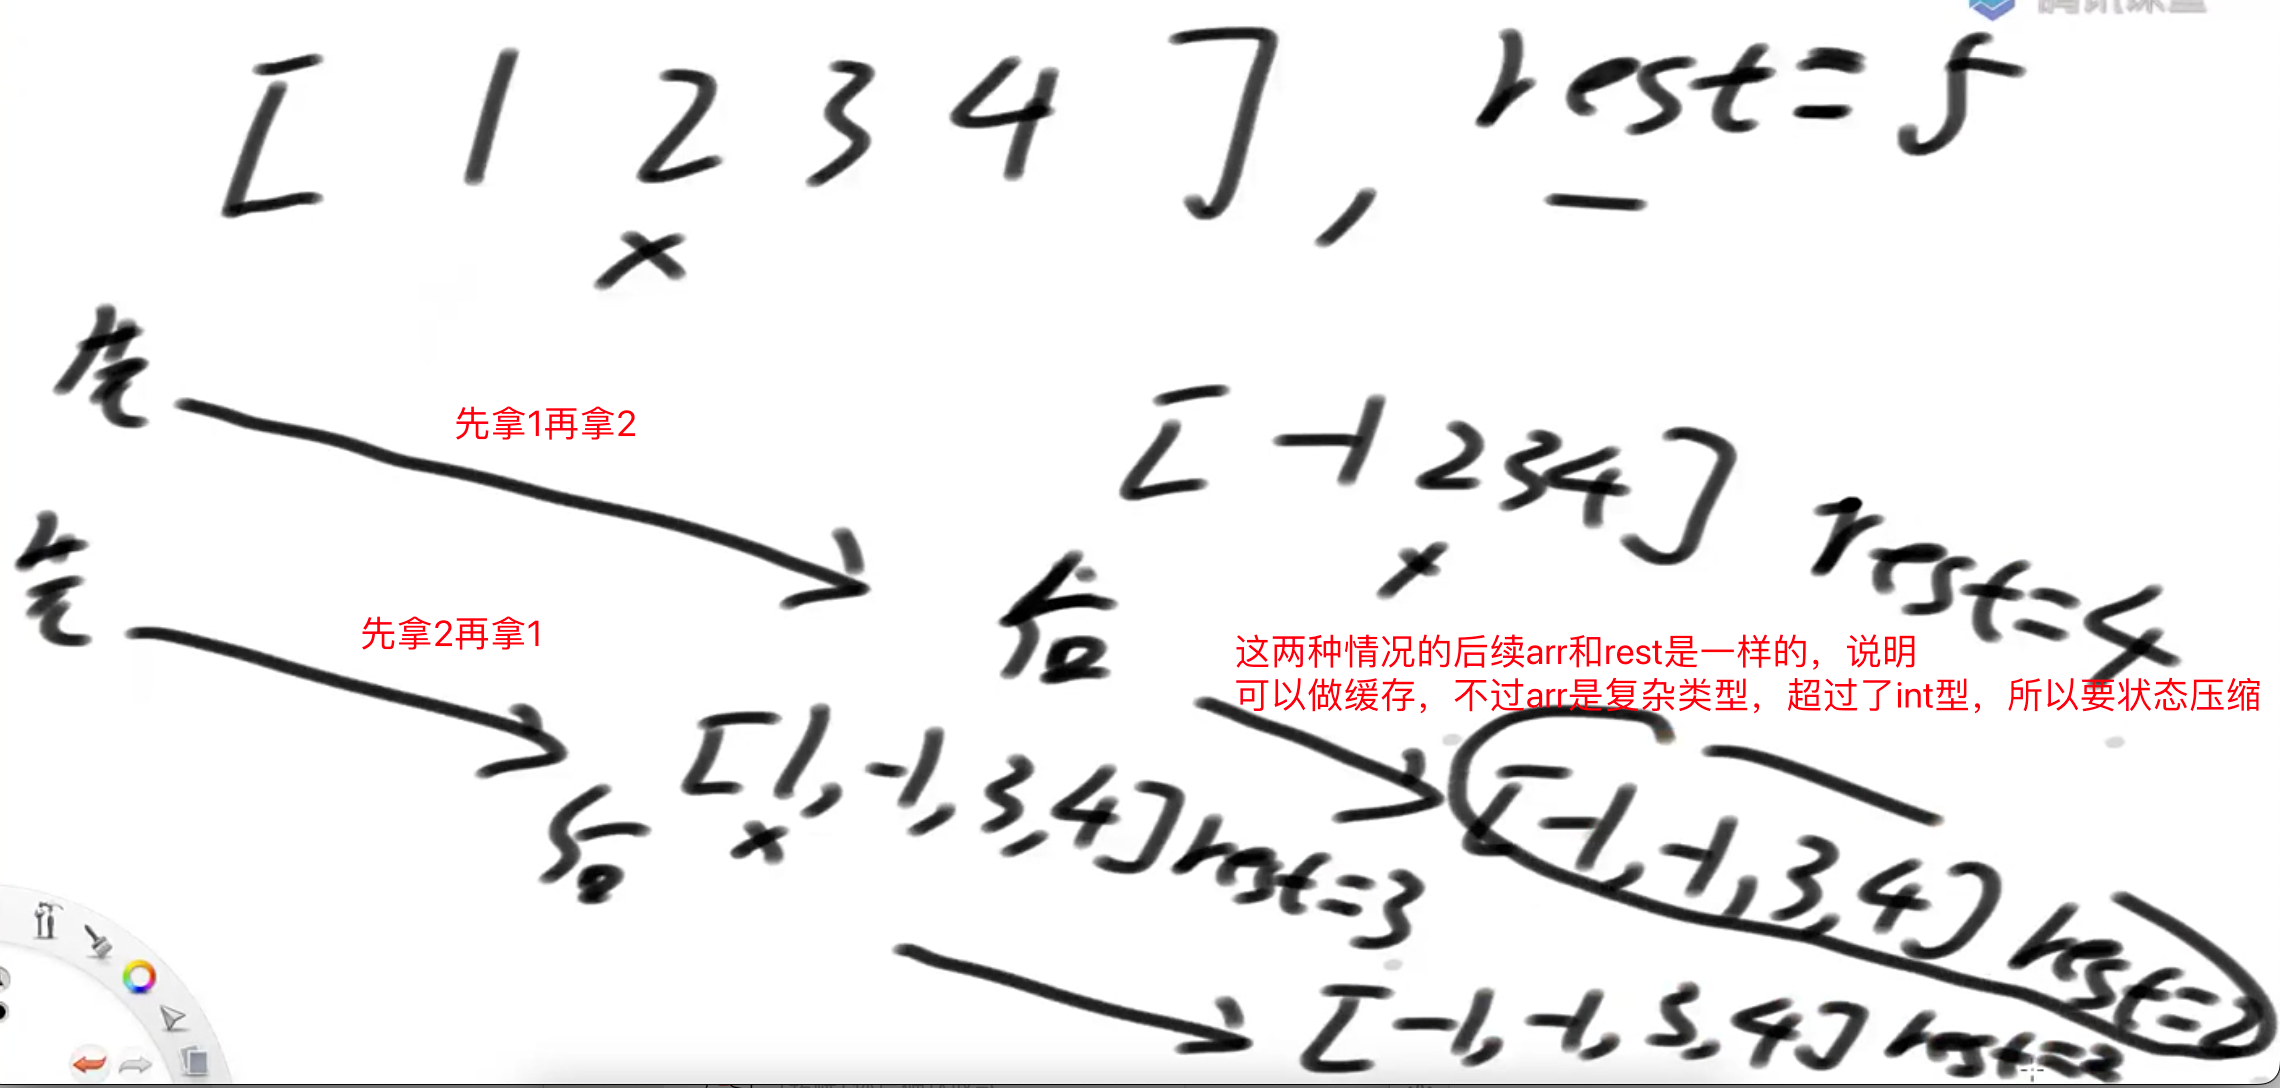 腾讯课堂
[ 1 2 3 4 ] , rest=5
x
先
先拿1再拿2
[ -1 2 3 4 ] rest=4
x
先
后
先拿2再拿1
这两种情况的后续arr和rest是一样的，说明
可以做缓存，不过arr是复杂类型，超过了int型，所以要状态压缩
[1, -1, 3, 4] rest=3
x
后
[-1, -1, 3, 4] rest=2
[-1, -1, 3, 4] rest=2